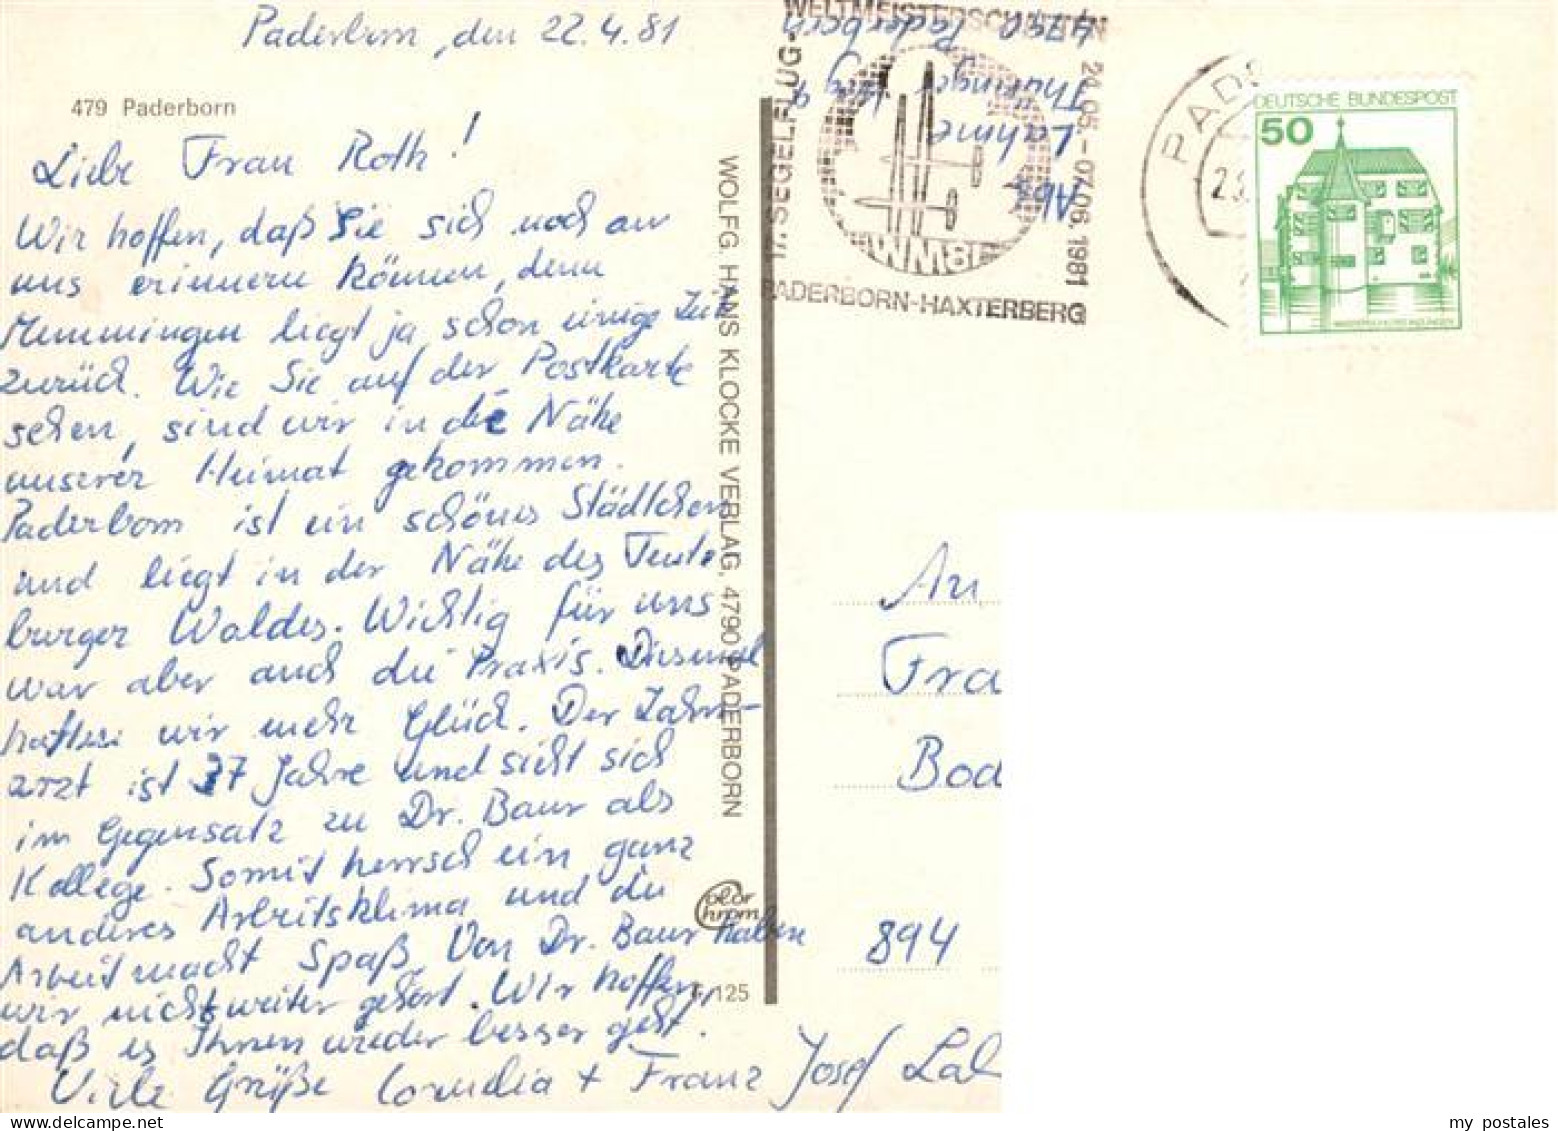 Paderborn, den 22.4.81
479 Paderborn
Liebe Frau Roth!
Wir hoffen, daß Sie sich noch an
uns erinnern können, denn
Memmingen liegt ja schon einige Zeit
zurück. Wie Sie auf der Postkarte
sehen, sind wir in die Nähe
unserer Heimat gekommen.
Paderborn ist ein schönes Städtchen
und liegt in der Nähe des Teuto
burger Waldes. Wichtig für uns
war aber auch die Praxis. Diesmal
hatten wir mehr Glück. Der Zahn-
arzt ist 37 Jahre und sieht sich
im Gegensatz zu Dr. Baur als
Kollege. Somit herrsch ein ganz
anderes Arbeitsklima und die
Arbeit macht Spaß. Von Dr. Baur haben
wir nicht weiter gehört. Wir hoffen,
daß es Ihnen wieder besser geht.
Viele Grüße Cornelia + Franz Josef Lah
WOLFG. HANS KLOCKE VERLAG, 4790 PADERBORN
Color
Chrom
125
WELTMEISTERSCHAFTEN
17. SEGELFLUG-
24.05.-07.06.1981
WM81
PADERBORN-HAXTERBERG
Abs.
Lahme
Thüringer Weg 9
4790 Paderborn
PADE
DEUTSCHE BUNDESPOST
50
An
Fra
Bod
894
my postales